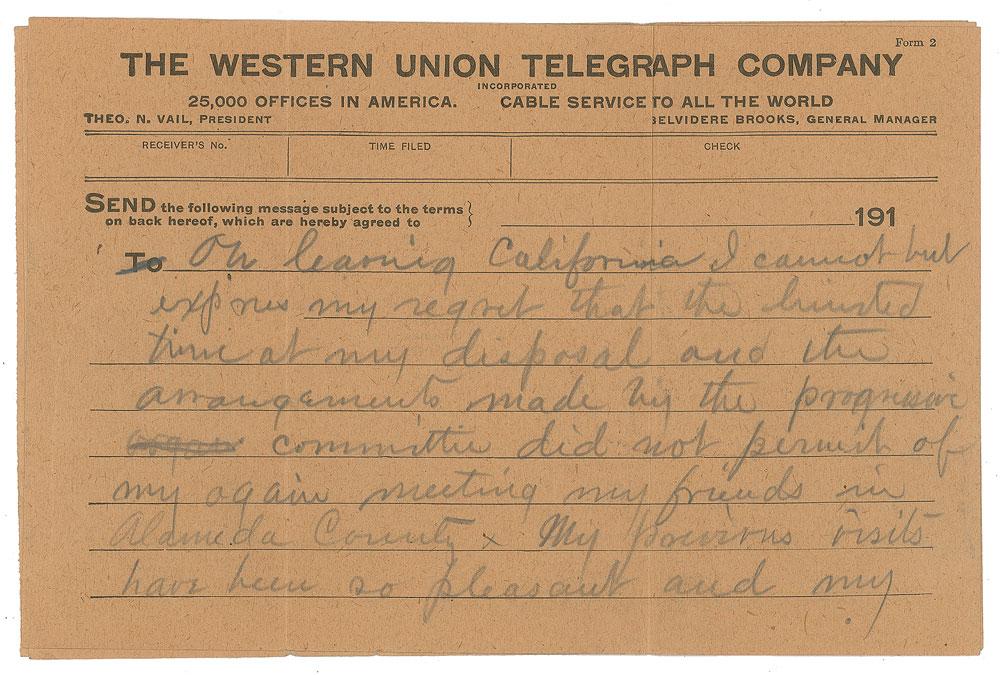 Form 2
THE WESTERN UNION TELEGRAPH COMPANY
INCORPORATED
25,000 OFFICES IN AMERICA. CABLE SERVICE TO ALL THE WORLD
THEO. N. VAIL, PRESIDENT BELVIDERE BROOKS, GENERAL MANAGER
RECEIVER'S No. TIME FILED CHECK
SEND the following message subject to the terms
on back hereof, which are hereby agreed to 191
To On leaving California I cannot but
express my regret that the limited
time at my disposal and the
arrangements made by the progressive
committee did not permit of
my again meeting my friends in
Alameda County x My previous visits
have been so pleasant and my